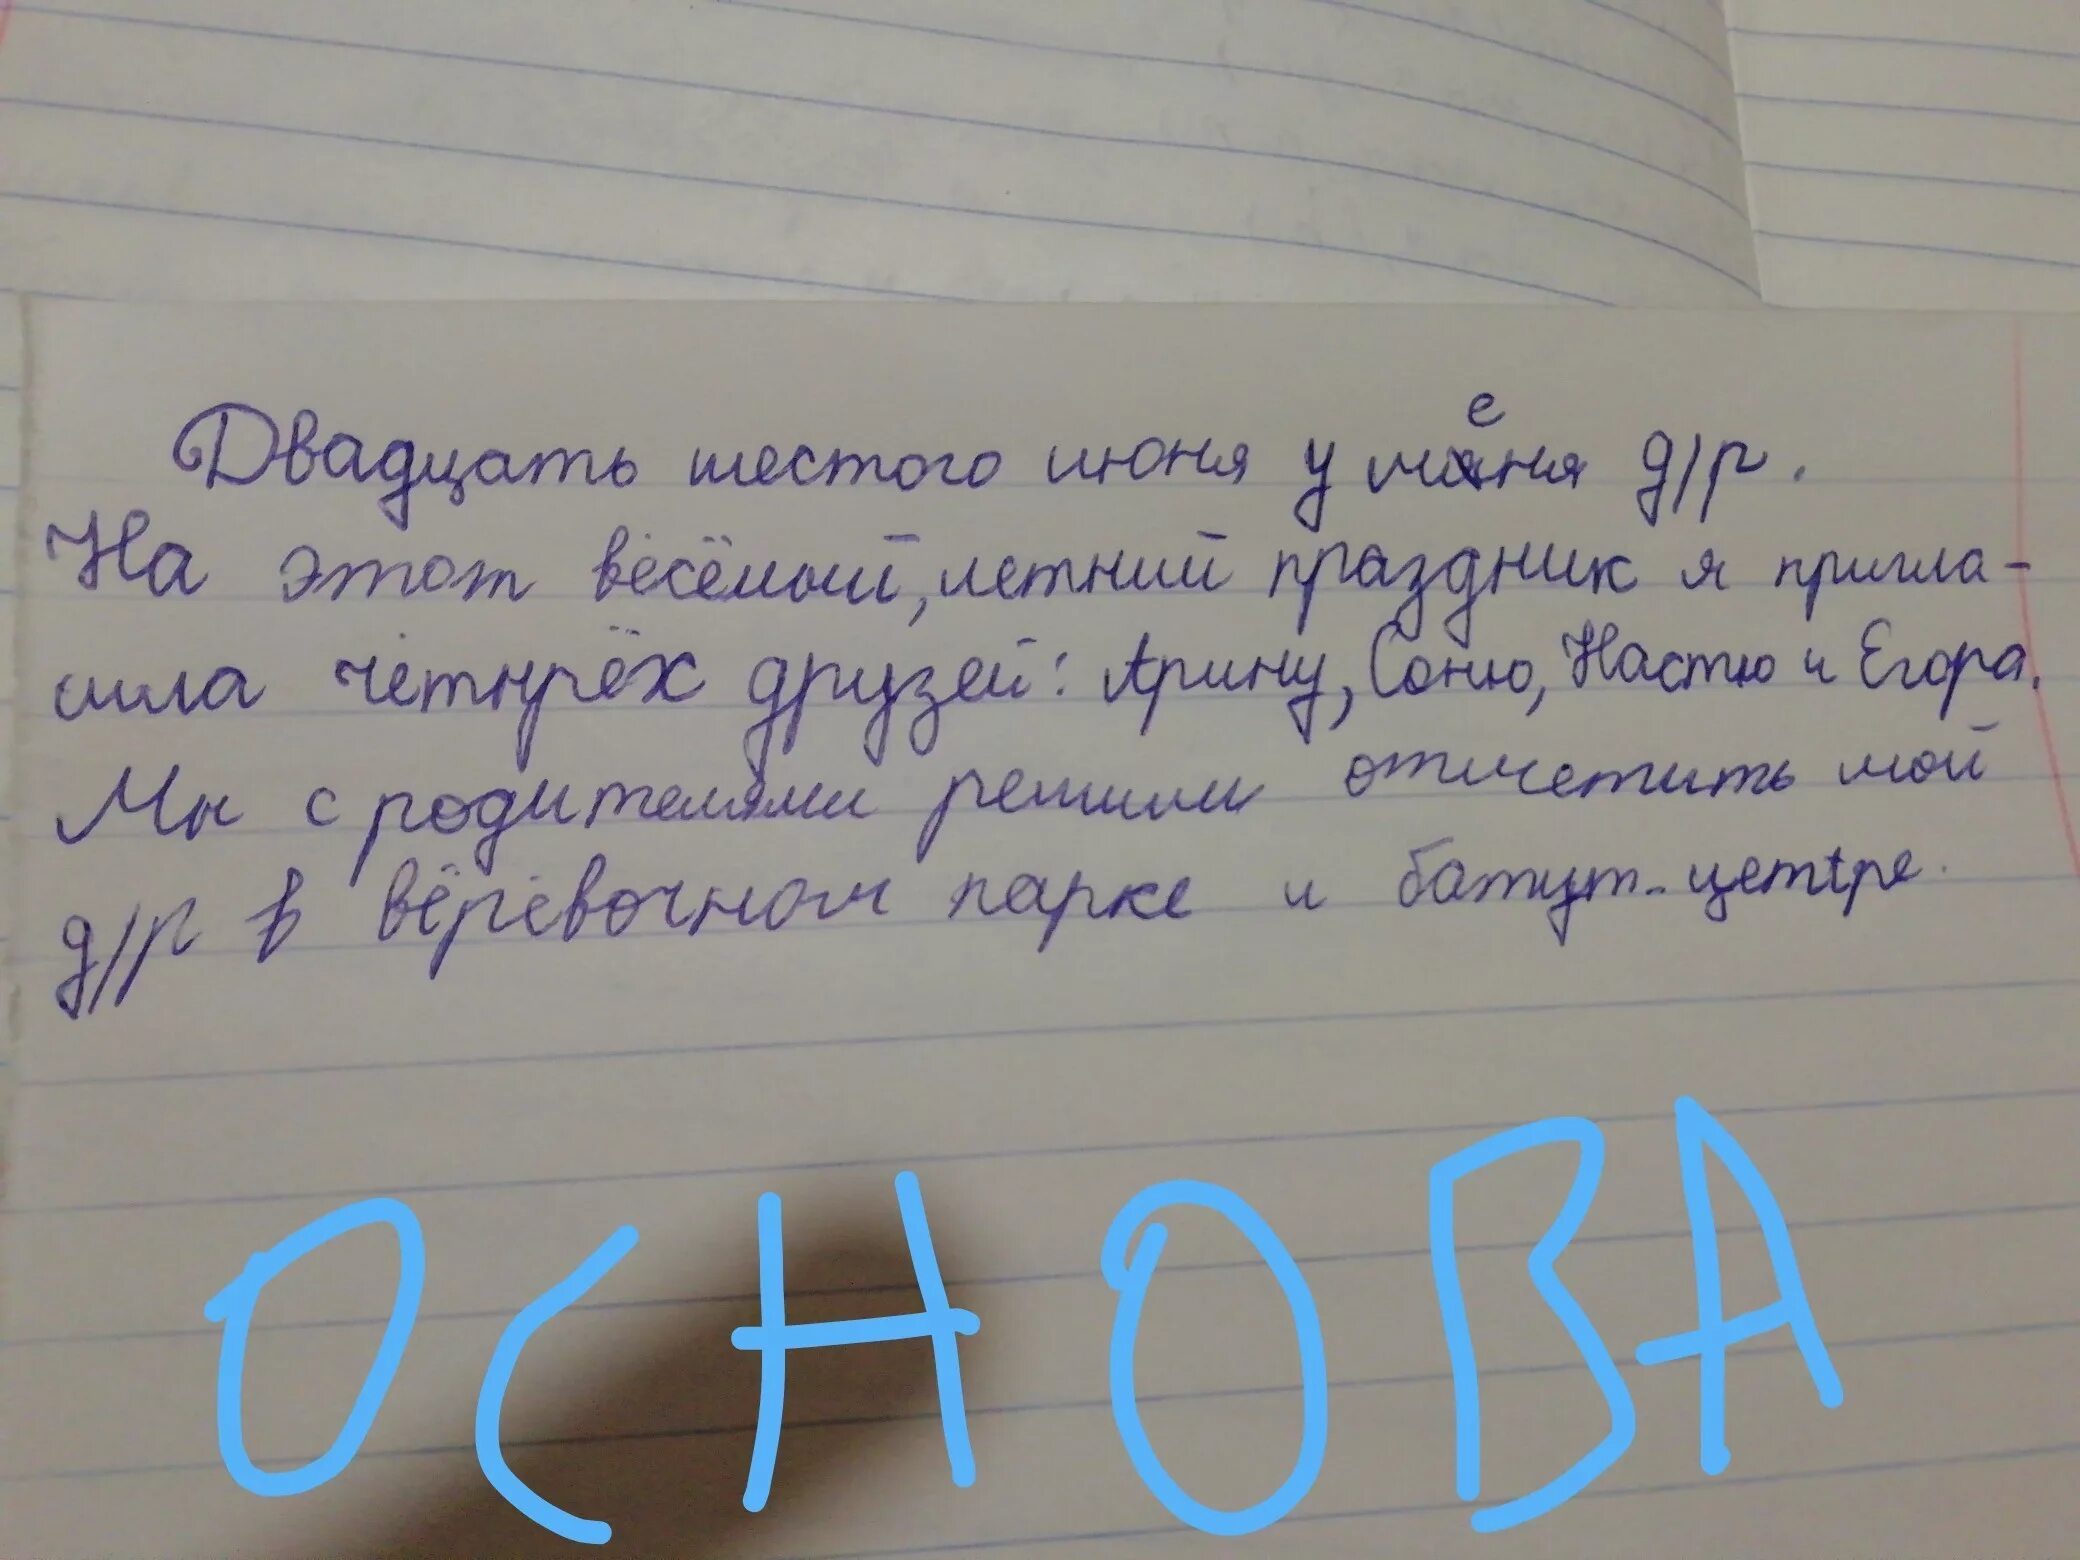 Двадцать шестого июня у меня д/р.
На этот весёлый, летний праздник я пригла-
сила четырёх друзей: Арину, Соню, Настю и Егора.
Мы с родителями решили отметить мой
д/р в вёрёвочном парке и батут-центре.
ОСНОВА